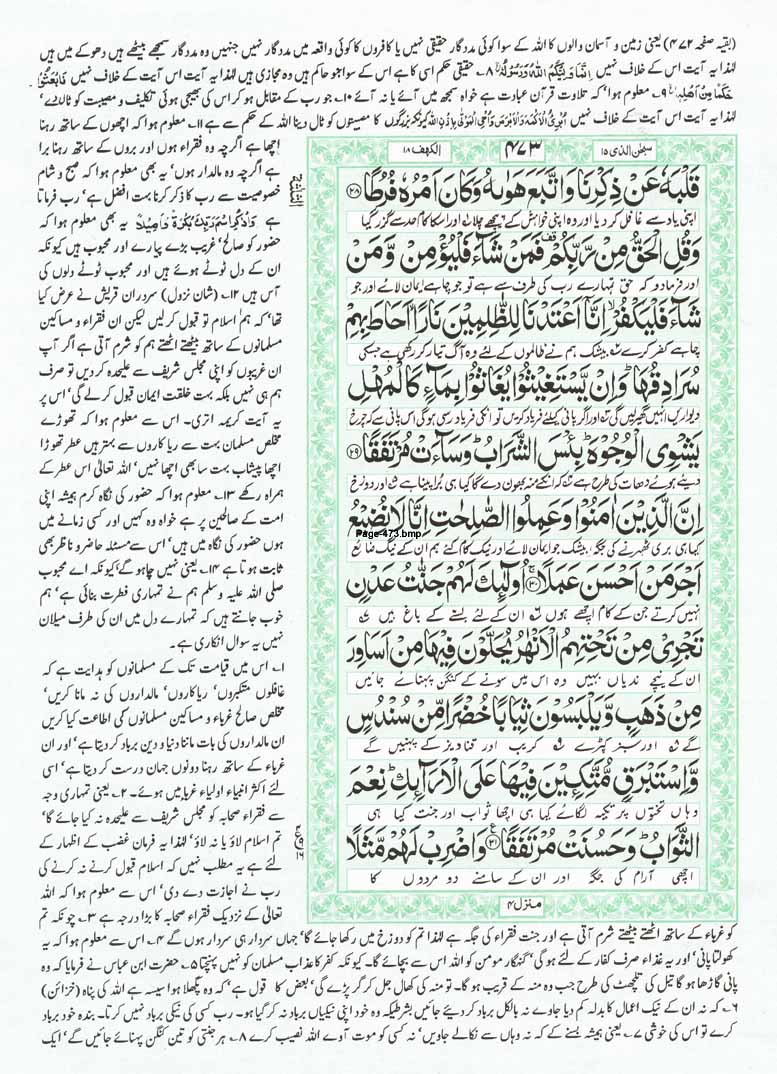 (بقیہ صفحہ ۴۷۲) یعنی زمین و آسمان والوں کا اللہ کے سوا کوئی مددگار حقیقی نہیں یا کافروں کا کوئی واقعہ میں مددگار نہیں جنہیں وہ مددگار سمجھے بیٹھے ہیں دھوکے میں ہیں
لہٰذا یہ آیت اس کے خلاف نہیں اِنَّمَا وَلِیُّکُمُ اللّٰہُ وَرَسُوْلُہٗ ۸۔ حقیقی حکم اسی کا ہے اس کے سوا جو حاکم ہیں وہ مجازی ہیں لہٰذا یہ آیت اس آیت کے خلاف نہیں فَابْعَثُوْا
حَکَمًا مِّنْ اَھْلِہٖ ۹۔ معلوم ہوا کہ تلاوت قرآن عبادت ہے خواہ سمجھ میں آئے یا نہ آئے ۱۰۔ جو رب کے مقابل ہو کر اس کی بھیجی ہوئی تکلیف و مصیبت کو ٹال دے
لہٰذا یہ آیت اس آیت کے خلاف نہیں اُبْرِئُ الْاَکْمَہَ وَالْاَبْرَصَ وَاُحْیِ الْمَوْتٰی بِاِذْنِ اللّٰہِ کیونکہ بزرگوں کا مصیبتوں کو ٹال دینا اللہ کے حکم سے ہے ۱۱۔ معلوم ہوا کہ اچھوں کے ساتھ رہنا
اچھا ہے اگرچہ وہ فقراء ہوں اور بروں کے ساتھ رہنا برا
ہے اگرچہ وہ مالدار ہوں یہ بھی معلوم ہوا کہ صبح و شام
خصوصیت سے رب کا ذکر کرنا بہت افضل ہے رب فرماتا
ہے وَاذْکُرِ اسْمَ رَبِّکَ بُکْرَۃً وَّاَصِیْلًا یہ بھی معلوم ہوا کہ
حضور کو صالح غریب بڑے پیارے اور محبوب ہیں کیونکہ
ان کے دل ٹوٹے ہوئے ہیں اور محبوب ٹوٹے دلوں کی
آس ہیں ۱۲۔ (شان نزول) سرداران قریش نے عرض کیا
تھا کہ ہم اسلام تو قبول کر لیں لیکن ان فقراء و مساکین
مسلمانوں کے ساتھ بیٹھتے اٹھتے ہم کو شرم آتی ہے اگر آپ
ان غریبوں کو اپنی مجلس شریف سے علیحدہ کر دیں تو صرف
ہم ہی نہیں بلکہ بہت خلقت ایمان قبول کر لے گی اس پر
یہ آیت کریمہ اتری۔ اس سے معلوم ہوا کہ تھوڑے
مخلص مسلمان بہت سے ریاکاروں سے بہتر ہیں عطر تھوڑا
اچھا پیشاب بہت سا بھی اچھا نہیں اللہ تعالٰی اس عطر کے
ہمراہ رکھے ۱۳۔ معلوم ہوا کہ حضور کی نگاہ کرم ہمیشہ اپنی
امت کے صالحین پر ہے خواہ وہ کہیں اور کسی زمانے میں
ہوں حضور کی نگاہ میں ہیں اس سے مسئلہ حاضر و ناظر بھی
ثابت ہوتا ہے ۱۴۔ یعنی نہیں چاہو گے کیونکہ اے محبوب
صلی اللہ علیہ وسلم ہم نے تمہاری فطرت بنائی ہے ہم
خوب جانتے ہیں کہ تمہارے دل میں ان کی طرف میلان
نہیں یہ سوال انکاری ہے۔
۱۔ اس میں قیامت تک کے مسلمانوں کو ہدایت ہے کہ
غافلوں متکبروں ریاکاروں مالداروں کی نہ مانا کریں
مخلص صالح غرباء و مساکین مسلمانوں کی اطاعت کیا کریں
ان مالداروں کی بات ماننا دنیا و دین برباد کر دیتا ہے اور ان
غرباء کے ساتھ رہنا دونوں جہان درست کر دیتا ہے اسی
لئے اکثر انبیاء اولیاء غرباء میں ہوئے۔ ۲۔ یعنی تمہاری وجہ
سے فقراء صحابہ کو مجلس شریف سے علیحدہ نہ کیا جائے گا
تم اسلام لاؤ یا نہ لاؤ لہٰذا یہ فرمان غضب کے اظہار کے
لئے ہے یہ مطلب نہیں کہ اسلام قبول کرنے نہ کرنے کی
رب نے اجازت دے دی اس سے معلوم ہوا کہ اللہ
تعالٰی کے نزدیک فقراء صحابہ کا بڑا درجہ ہے ۳۔ چونکہ تم
سبحٰن الذی ۱۵
۴۷۳
الکھف ۱۸
الثلثۃ
قَلْبَهٗ عَنْ ذِكْرِنَا وَاتَّبَعَ هَوٰىهُ وَكَانَ اَمْرُهٗ فُرُطًا ۲۸
اپنی یاد سے غافل کر دیا اور وہ اپنی خواہش کے پیچھے چلا اور اس کا کام حد سے گزر گیا
وَقُلِ الْحَقُّ مِنْ رَّبِّكُمْ فَمَنْ شَآءَ فَلْيُؤْمِنْ وَّمَنْ
اور فرما دو کہ حق تمہارے رب کی طرف سے ہے تو جو چاہے ایمان لائے اور جو
شَآءَ فَلْيَكْفُرْ اِنَّآ اَعْتَدْنَا لِلظّٰلِمِيْنَ نَارًا اَحَاطَ بِهِمْ
چاہے کفر کرے بیشک ہم نے ظالموں کے لئے وہ آگ تیار کر رکھی ہے جس کی
سُرَادِقُهَا وَاِنْ يَّسْتَغِيْثُوْا يُغَاثُوْا بِمَآءٍ كَالْمُهْلِ
دیواریں انہیں گھیر لیں گی اور اگر پانی کیلئے فریاد کریں تو انکی فریاد رسی ہوگی اس پانی سے کہ چرخ
يَشْوِى الْوُجُوْهَ بِئْسَ الشَّرَابُ وَسَآءَتْ مُرْتَفَقًا ۲۹
دیئے ہوئے دھات کی طرح ہے کہ انکے منہ بھون دے گا کیا ہی برا پینا ہے اور دوزخ
اِنَّ الَّذِيْنَ اٰمَنُوْا وَعَمِلُوا الصّٰلِحٰتِ اِنَّا لَا نُضِيْعُ
Page-473.bmp
کیا ہی بری ٹھہرنے کی جگہ بیشک جو ایمان لائے اور نیک کام کئے ہم ان کے نیگ ضائع
اَجْرَ مَنْ اَحْسَنَ عَمَلًا ۳۰ اُولٰٓئِكَ لَهُمْ جَنّٰتُ عَدْنٍ
نہیں کرتے جن کے کام اچھے ہوں ان کے لئے بسنے کے باغ ہیں
تَجْرِىْ مِنْ تَحْتِهِمُ الْاَنْهٰرُ يُحَلَّوْنَ فِيْهَا مِنْ اَسَاوِرَ
ان کے نیچے ندیاں بہیں وہ اس میں سونے کے کنگن پہنائے جائیں
مِنْ ذَهَبٍ وَّيَلْبَسُوْنَ ثِيَابًا خُضْرًا مِّنْ سُنْدُسٍ
گے اور سبز کپڑے کریب اور قنادیز کے پہنیں گے
وَّاِسْتَبْرَقٍ مُّتَّكِـِٕيْنَ فِيْهَا عَلَى الْاَرَآىِٕكِ نِعْمَ
وہاں تختوں پر تکیہ لگائے کیا ہی اچھا ثواب اور جنت کیا ہی
الثَّوَابُ وَحَسُنَتْ مُرْتَفَقًا ۳۱ وَاضْرِبْ لَهُمْ مَّثَلًا
اچھی آرام کی جگہ اور ان کے سامنے دو مردوں کا
ع ۱۶
منزل ۴
کو غرباء کے ساتھ اٹھتے بیٹھتے شرم آتی ہے اور جنت فقراء کی جگہ ہے لہٰذا تم کو دوزخ میں رکھا جائے گا جہاں سردار ہی سردار ہوں گے ۴۔ اس سے معلوم ہوا کہ یہ
کھولتا پانی اور یہ غذاء صرف کفار کے لئے ہو گی گنہگار مومن کو اللہ اس سے بچائے گا۔ کیونکہ کفر کا عذاب مسلمان کو نہیں پہنچتا ۵۔ حضرت ابن عباس نے فرمایا کہ وہ
پانی گاڑھا ہو گا تیل کی تلچھٹ کی طرح جب وہ منہ کے قریب ہو گا۔ تو منہ کی کھال جل کر گر پڑے گی بعض کا قول ہے کہ وہ پگھلا ہوا سیسہ ہے اللہ کی پناہ (خزائن)
۶۔ کہ نہ ان کے نیک اعمال کا بدلہ کم دیا جاوے نہ بالکل برباد کر دیئے جائیں بشرطیکہ وہ خود اپنی نیکیاں برباد نہ کر گیا ہو۔ رب کسی کی نیکی برباد نہیں کرتا۔ بندہ خود برباد
کرے تو اس کی خوشی ۷۔ یعنی ہمیشہ بسنے کے کہ نہ وہاں سے نکالے جاویں نہ کسی کو موت آوے اللہ نصیب کرے ۸۔ ہر جنتی کو تین کنگن پہنائے جائیں گے ایک